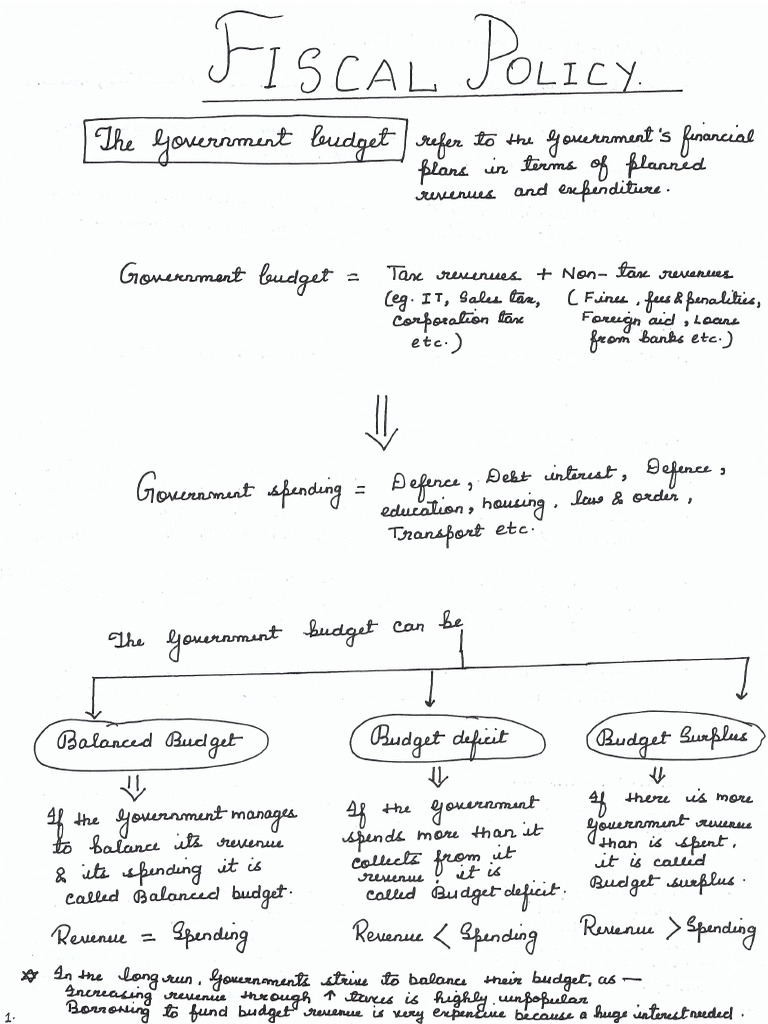 FISCAL POLICY.
The Government budget refer to the Government's financial
plans in terms of planned
revenues and expenditure.
Government budget = Tax revenues + Non-tax revenues
(eg. IT, Sales tax, (Fines, fees & penalities,
Corporation tax Foreign aid, Loans
etc.) from banks etc.)
Government spending = Defence, Debt interest, Defence,
education, housing, law & order,
Transport etc.
The Government budget can be
Balanced Budget Budget deficit Budget Surplus
If the Government manages
to balance its revenue
& its spending it is
called Balanced budget.
Revenue = Spending
If the Government
spends more than it
collects from it
revenue, it is
called Budget deficit.
Revenue < Spending
If there is more
Government revenue
than is spent,
it is called
Budget surplus.
Revenue > Spending
☆ In the long run, Governments strive to balance their budget, as —
Increasing revenue through ↑ taxes is highly unpopular
Borrowing to fund budget revenue is very expencive because a huge interest needed.
1.